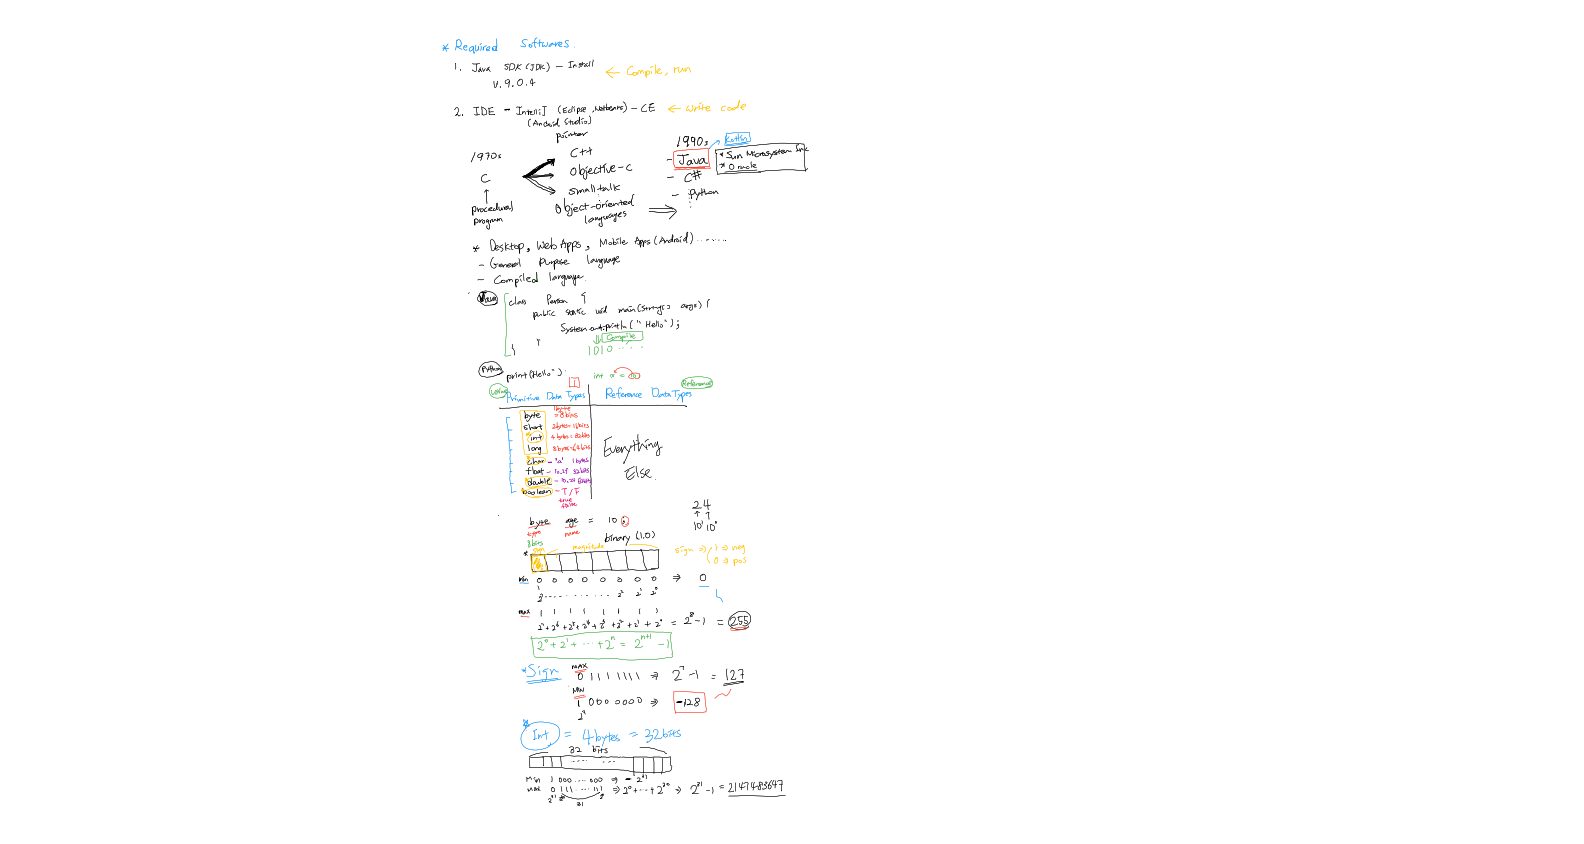 * Required Softwares
1. Java SDK (JDK) - Install ← Compile, run
V.9.0.4
2. IDE - IntelliJ (Eclipse, Netbeans) - CE ← write code
(Android Studio)
pointer
1970s
C
↑
procedural
program
C++
Objective-C
small talk
Object-oriented
languages
1990s
- Java
Kotlin
* Sun Microsystem Inc
* Oracle
- C#
- Python
* Desktop, Web Apps, Mobile Apps (Android) .......
- General Purpose language
- Compiled language.
Java
class Person {
public static void main(String[] args) {
System.out.println("Hello");
}
}
Compile
1010 .....
Python
print("Hello")
int
Value
Reference
Primitive Data Types
Reference Data Types
byte 1byte = 8bits
short 2bytes = 16bits
int 4bytes = 32bits
long 8bytes = 64bits
char - 'a' 1bytes
float 32bits
double
boolean - T/F
true
false
Everything
Else.
24
↑ ↑
10¹ 10⁰
byte age = 10;
type name
8bits
binary (1.0)
sign magnitude
sign ⇒ 1 ⇒ neg
0 ⇒ pos
Min 0 0 0 0 0 0 0 0 ⇒ 0
2² 2¹ 2⁰
max 1 1 1 1 1 1 1 1
2⁷+2⁶+2⁵+2⁴+2³+2²+2¹+2⁰ = 2⁸-1 = 255
2⁰+2¹+...+2ⁿ = 2ⁿ⁺¹-1
*Sign
MAX
0 1111111 ⇒ 2⁷-1 = 127
MIN
1 0000000 ⇒ -128
2⁷
* Int = 4bytes = 32bits
32 bits
Min 1 000....000 ⇒ -2³¹
Max 0 111....111 ⇒ 2⁰+...+2³⁰ ⇒ 2³¹-1 = 2147483647
31